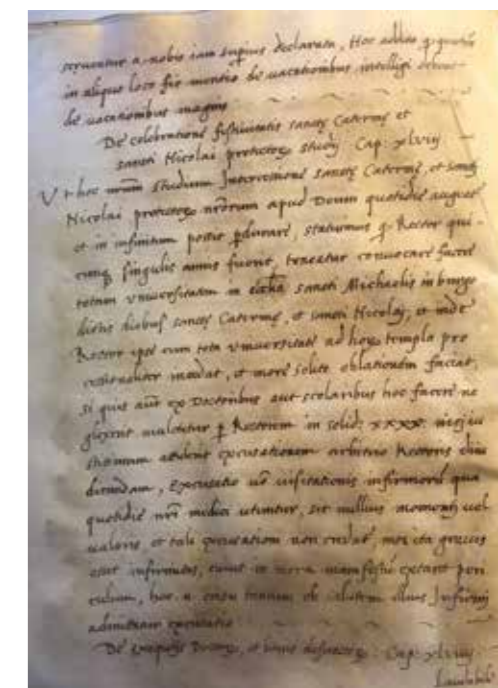 servantur a nobis iam superius declarata, Hoc addito q. quoties
in aliquo loco fit mentio de vacationibus intelligi
de vacationibus magnis
De celebratione festivitatis sancte Caterine et
sancti Nicolai protectorum studii Cap: xlviij
Vt hoc nrũm studium Intercessione sancte Caterine, et sancti
Nicolai protectorum nrõrum apud Deum quotidie
et in infinitum possit pdurare, statuimus q. Rector qui
cunq singulis annis fuerit, teneatur convocare facere
totam vniversitatem in sancti Michaelis in burgo
dictis diebus sancte Caterine, et sancti Nicolai, et inde
Rector ipse cum tota vniversitate ad templa pro
cessionaliter incedat, et more solito oblationem faciat,
si quis aũt ex Doctoribus aut scolaribus hoc facere ne
glexerit mulctetur p Rectorem in solid: xxxx. nisi ju
stissimam attulerit excusationem arbitrio Rectoris diiu
dicandam, Excusatio visitationis infirmorum qua
quotidie nrĩ medici utuntur, sit nullius momenti vel
valoris et tali excusationi non nisi ita gravis
esset infirmitas, cuius in mora manifestũ extaret peri
culum, hoc casu tantum ob salutem illius Infirmi
admittatur excusatio
De exequijs et Cap: xlviiij